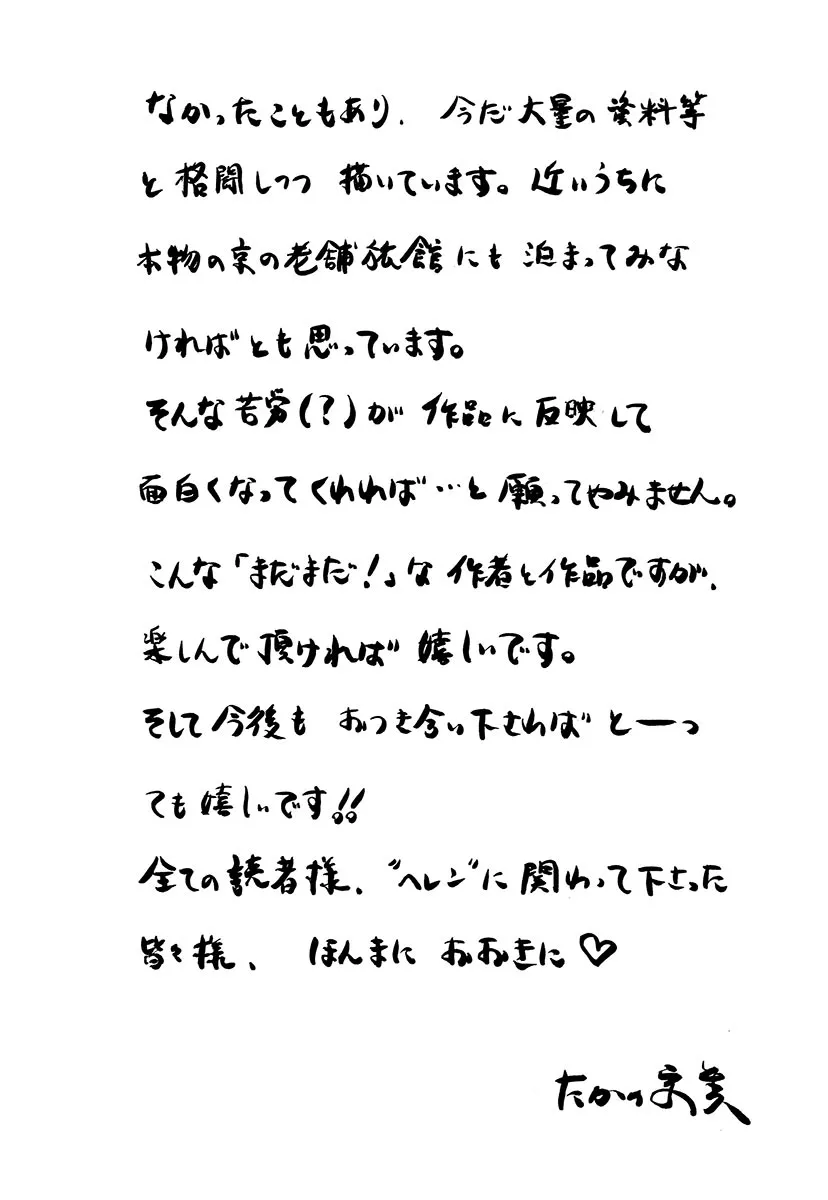 なかったこともあり、今だ大量の資料等
と格闘しつつ 描いています。近いうちに
本物の京の老舗旅館にも泊まってみな
ければとも思っています。
そんな苦労(?)が 作品に反映して
面白くなってくれれば…と願ってやみません。
こんな「まだまだ!」な 作者と作品ですが、
楽しんで頂ければ 嬉しいです。
そして今後も おつき合い下さればと―っ
ても嬉しいです!!
全ての読者様、"ヘレン"に関わって下さった
皆々様、 ほんまに おおきに♡
たかの宗美